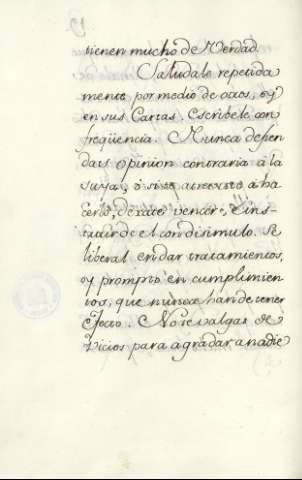 tienen mucho de Verdad.
Saludale repetida
mente por medio de otros, ò y
en sus Cartas. Escribele con
freqüencia. Nunca defien
das opinion contraria à la
suya, ò si te atreviere à ha
cerlo, dexate vencer, è ins-
truir de el con disimulo. Se
liberal en dar tratamientos,
y prompto en cumplimien
tos, que nunca han de tener
efecto. No te valgas de
Vicios para agradar a nadie